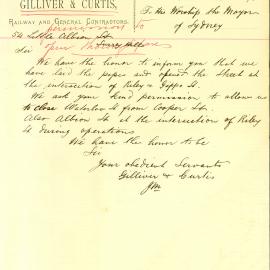 GILLIVER & CURTIS,
RAILWAY AND GENERAL CONTRACTORS.
To the Worship the Mayor
of Sydney
permission to
54 Little Albion St
Sir
We have the honor to inform you that we
have laid the pipes and opened the street at
the intersection of Riley & Gipps St.
We ask your kind permission to allow us
to close Waterloo St from Cooper St.
Also Albion St at the intersection of Riley
St during operations
We have the honor to be
Sir
Your obedient Servants
Gilliver & Curtis